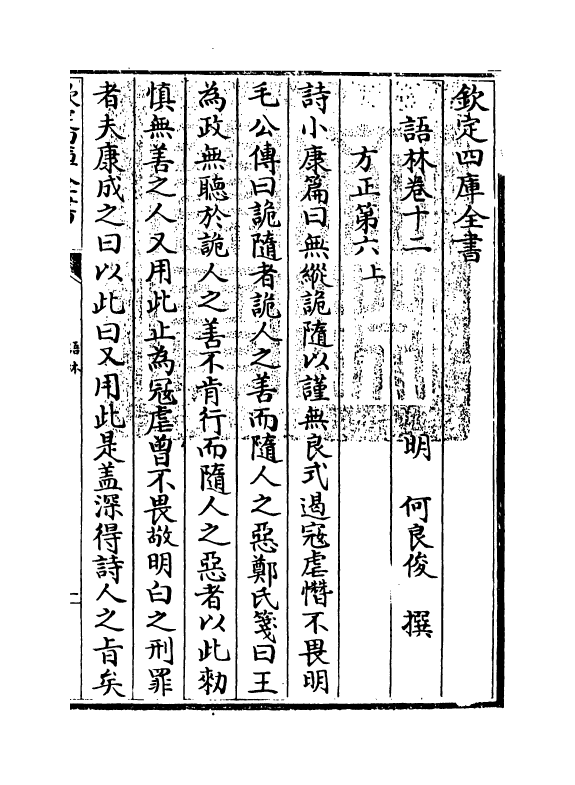 欽定四庫全書
語林卷十二
明 何良俊 撰
方正第六上
詩小康篇曰無縱詭隨以謹無良式遏寇虐憯不畏明
毛公傳曰詭隨者詭人之善而隨人之惡鄭氏箋曰王
為政無聽於詭人之善不肯行而隨人之惡者以此勑
慎無善之人又用此止為寇虐曾不畏敬明白之刑罪
者夫康成之曰以此曰又用此是盖深得詩人之㫖矣
語林